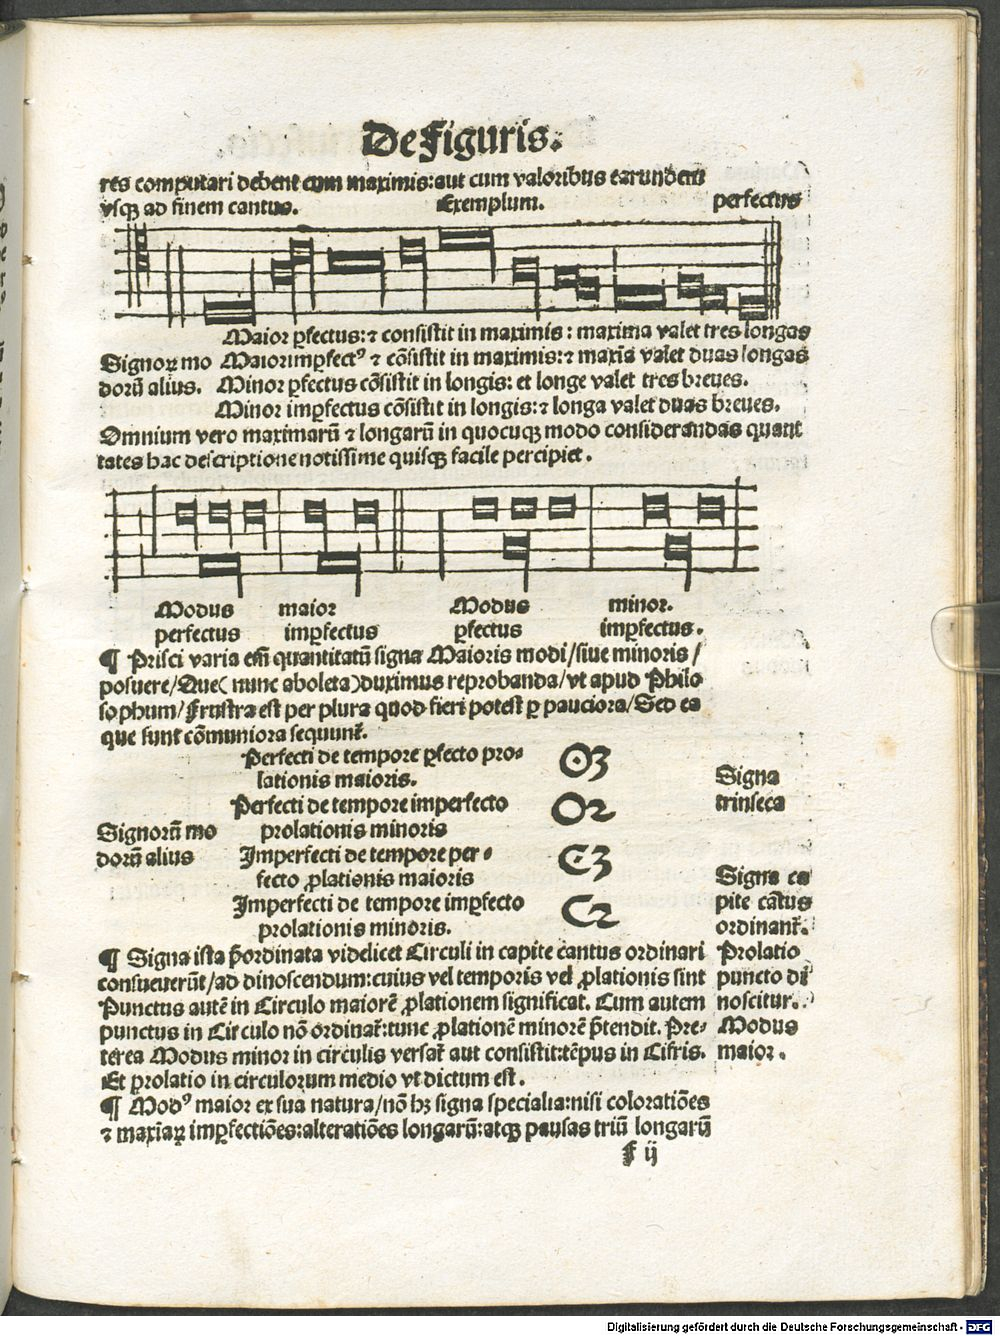 De Figuris.
res computari debent cum maximis:aut cum valoribus earundem
vsqꝫ ad finem cantus. Exemplum. perfectus
Maior ꝑfectus:⁊ consistit in maximis : maxima valet tres longas
Signoꝝ mo Maiorimꝑfectꝰ ⁊ cōsistit in maximis:⁊ maxīa valet duas longas
dorū alius. Minor ꝑfectus cōsistit in longis: et longe valet tres breues.
Minor imꝑfectus cōsistit in longis:⁊ longa valet duas breues.
Omnium vero maximarū ⁊ longarū in quocūqꝫ modo considerandas quant
tates hac descriptione notissime quisqꝫ facile percipiet.
Modus maior Modus minor.
perfectus imꝑfectus ꝑfectus imꝑfectus.
¶ Prisci varia em̄ quantitatū signa Maioris modi/siue minoris/
posuere/Que( nunc aboleta)duximus reprobanda/vt apud Philo
sophum/Frustra est per plura quod fieri potest ꝑ pauciora/Sed ea
que sunt cōmuniora sequunt᷑.
Perfecti de tempore ꝑfecto pro⸗
lationis maioris. O3
Signa
trinseca
Perfecti de tempore imperfecto
prolationis minoris O2
Signorū mo
dorū alius
Imperfecti de tempore per⸗
fecto ꝓlationis maioris C3
Signa ca
pite cātus
ordinant᷑.
Imperfecti de tempore imꝑfecto
prolationis minoris. C2
¶ Signa ista p̄ordinata videlicet Circuli in capite cantus ordinari
consueuerūt/ad dinoscendum:cuius vel temporis vel ꝓlationis sint
Punctus autē in Circulo maiorē ꝓlationem significat. Cum autem
punctus in Circulo nō ordinat᷑:tunc ꝓlationē minorē p̄tendit. Pre⸗
terea Modus minor in circulis versat᷑ aut consistit:tēpus in Cifris.
Et prolatio in circulorum medio vt dictum est.
Prolatio
puncto di
noscitur.
Modus
maior.
¶ Modꝰ maior ex sua natura/nō hꝫ signa specialia:nisi coloratiōes
⁊ maxīaꝝ imꝑfectiōes:alteratiōes longarū:atqꝫ pausas triū longarū
F ij
Digitalisierung gefördert durch die Deutsche Forschungsgemeinschaft - DFG